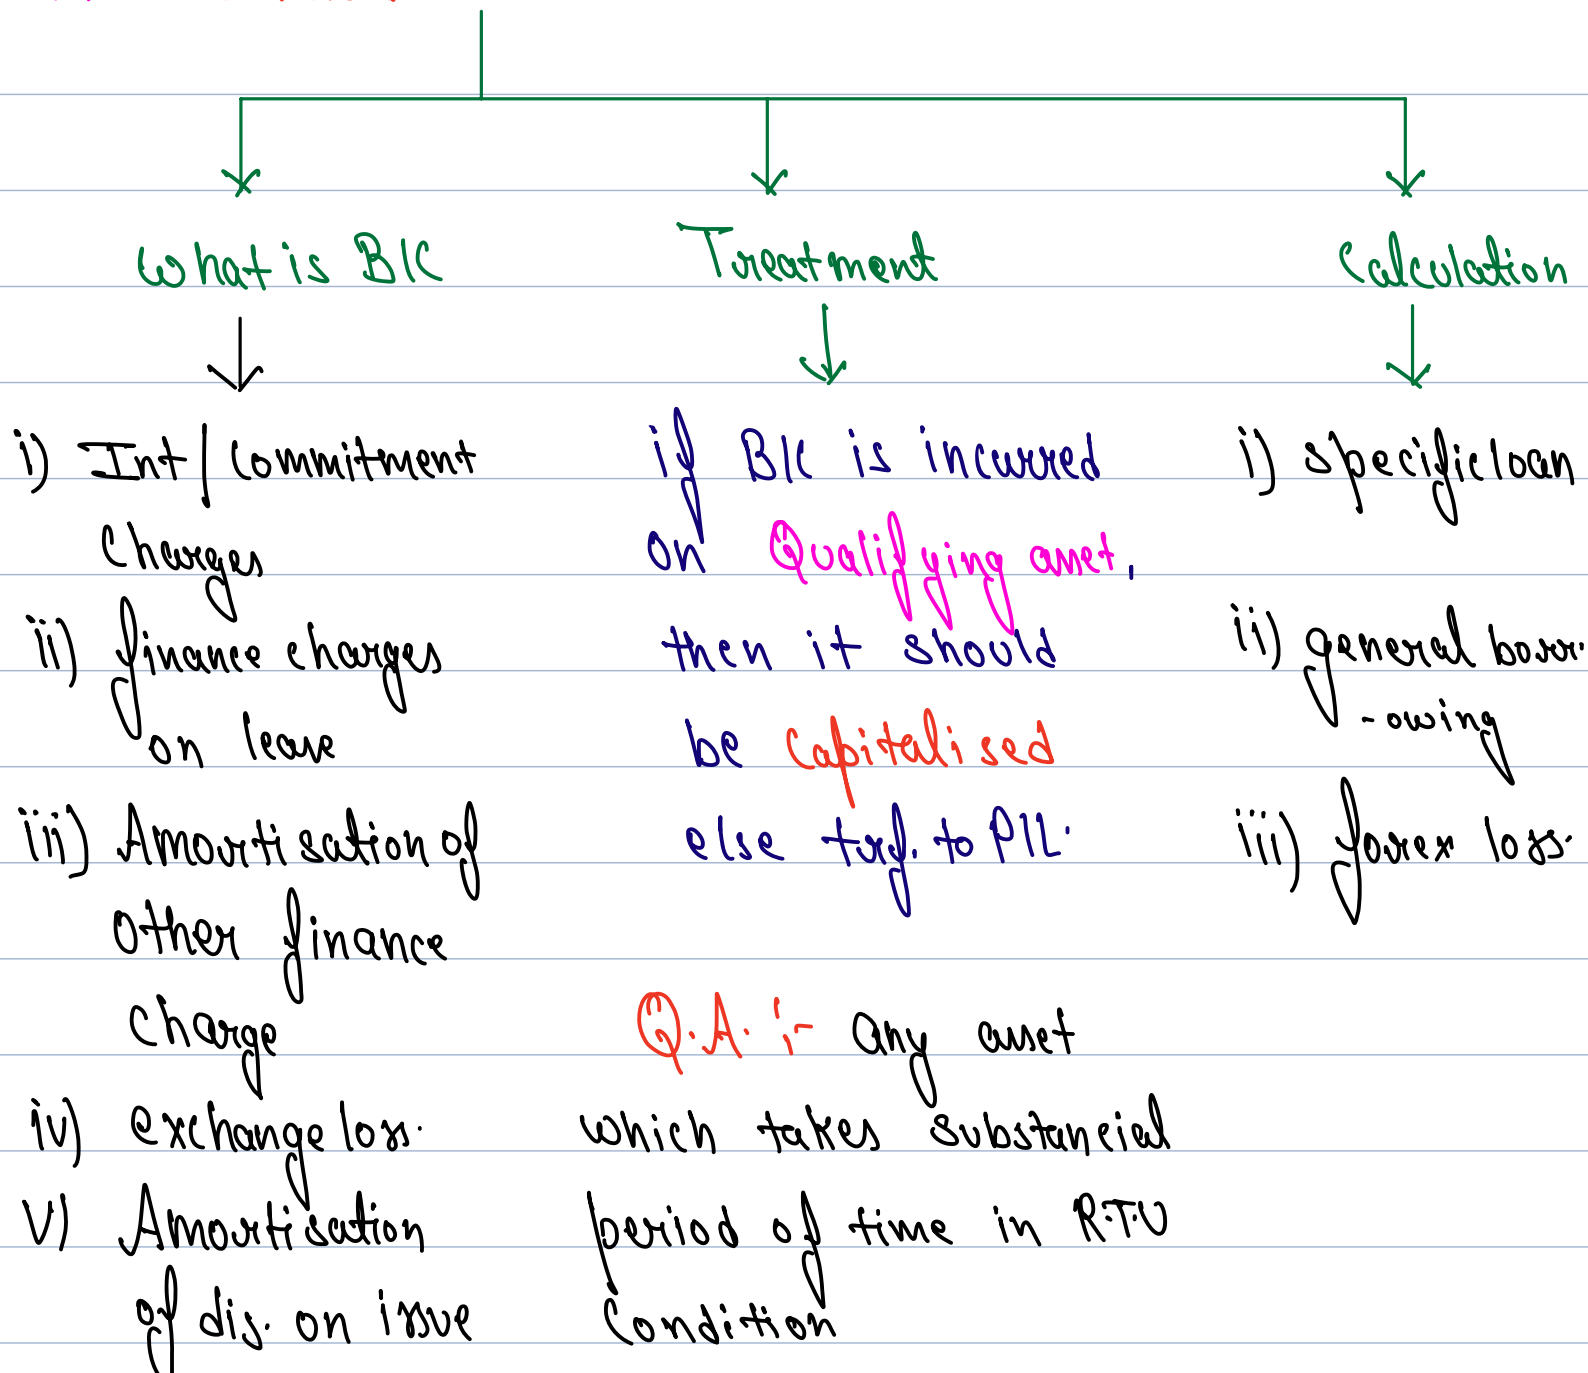 What is B/C
Treatment
Calculation
i) Int/Commitment
Charges
ii) finance charges
on lease
iii) Amortisation of
other finance
charge
iv) exchange loss.
v) Amortisation
of dis. on issue
if B/C is incurred
on Qualifying asset,
then it should
be Capitalised
else trf. to P/L.
Q.A. :- Any asset
which takes substancial
period of time in R.T.U
Condition
i) specific loan
ii) general borr.
-owing
iii) forex loss.